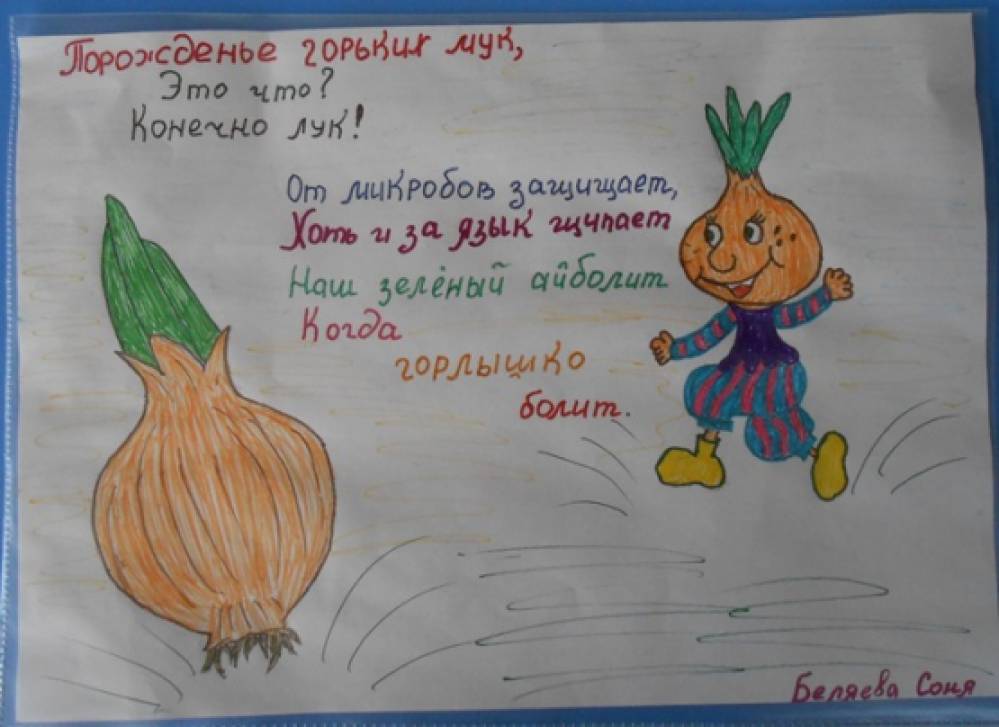 Порожденье горьких мук,
Это что?
Конечно лук!
От микробов защищает,
Хоть и за язык щипает
Наш зелёный айболит
Когда
горлышко
болит.
Беляева Соня